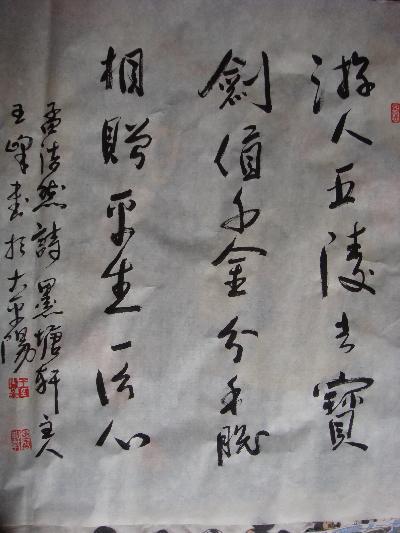 游人五陵去寶
劍值千金分手脫
相贈平生一片心
孟浩然詩墨塘軒主人
王峰書於太平陽